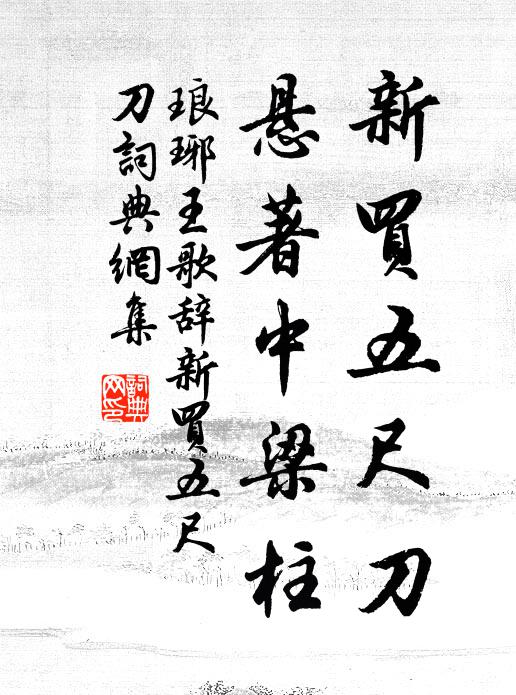 新買五尺刀
悬著中梁柱
琅琊王歌辞新買五尺
刀詞典網集
詞典
网印